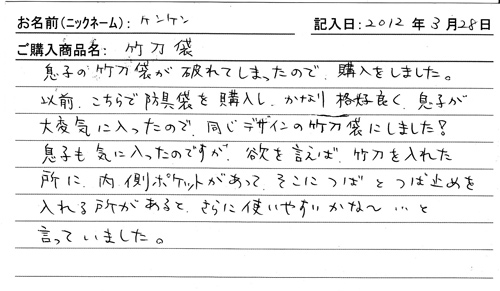 お名前(ニックネーム): ケンケン 記入日:2012 年 3 月 28 日
ご購入商品名: 竹刀袋
息子の竹刀袋が破れてしまったので、購入をしました。
以前、こちらで防具袋を購入し、かなり格好良く、息子が
大変気に入ったので、同じデザインの竹刀袋にしました!
息子も気に入ったのですが、欲を言えば、竹刀を入れた
所に、内側ポケットがあって、そこにつばとつば止めを
入れる所があると、さらに使いやすいかな〜…と
言っていました。